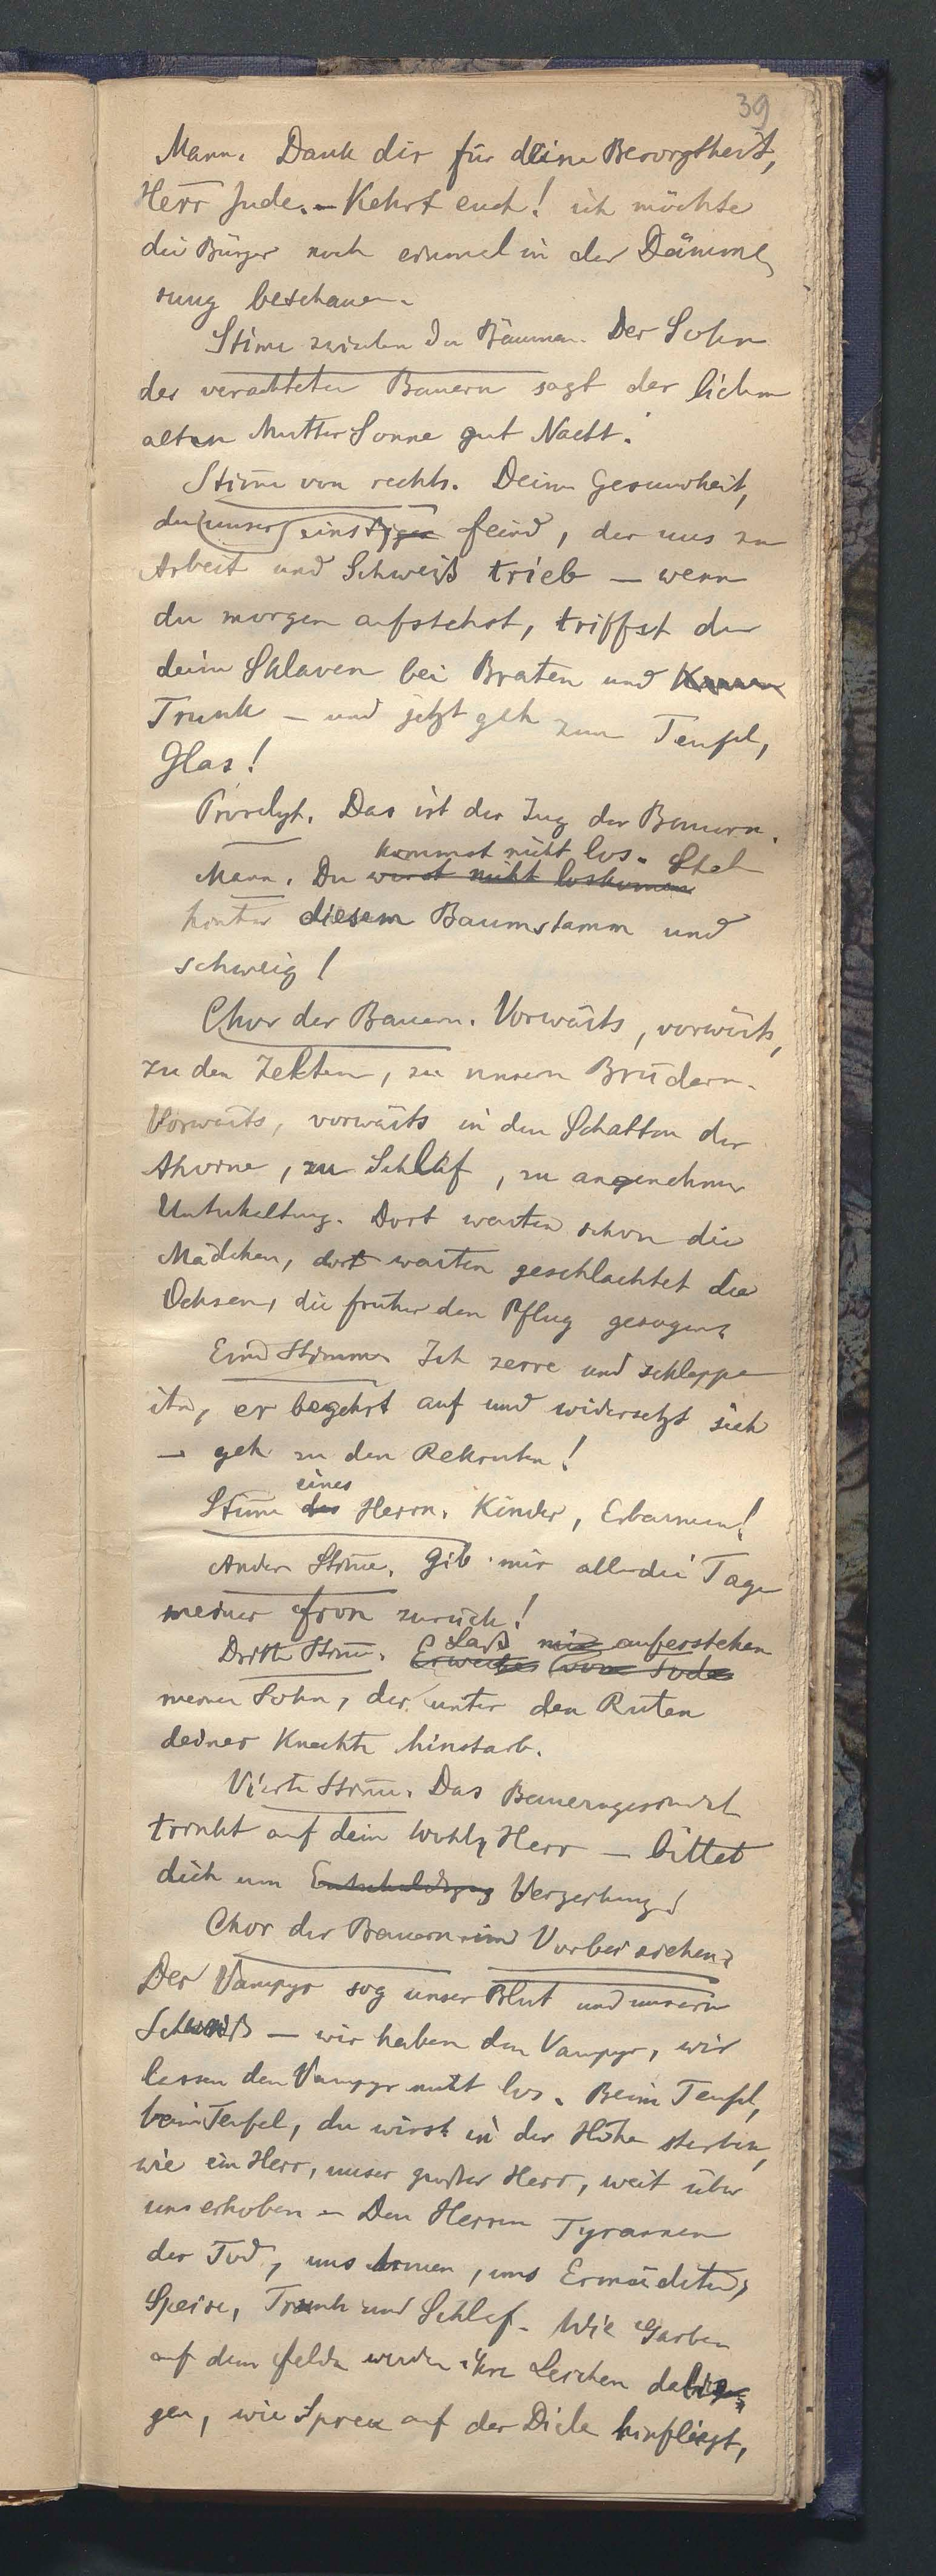 39
Mann. Dank dir für deine Besorgtheit,
Herr Jude. – Kehrt euch! ich möchte
die Bürger noch einmal in der Dämme
rung beschauen.
Stime zwischen den Bäumen. Der Sohn
des verachteten Bauern sagt der lieben
alten Mutter Sonne gut Nacht.
Stime von rechts. Deine Gesundheit,
du unser einstiger Feind, der uns zu
Arbeit und Schweiß trieb – wenn
du morgen aufstehst, triffst du
deine Sklaven bei Braten und
Trunk – und jetzt geh zum Teufel,
Glas!
Proselyt. Das ist der Zug der Bauern.
kommst nicht los. Steh
Mann. Du wirst nicht loskommen
hinter diesem Baumstamm und
schweig!
Chor der Bauern. Vorwärts, vorwärts,
zu den Zelten, zu unsern Brüdern.
Vorwärts, vorwärts in den Schatten der
Ahorne, zu Schlaf, zu angenehmer
Unterhaltung. Dort warten schon die
Mädchen, dort warten geschlachtet die
Ochsen, die früher den Pflug gezogen.
Eine Stimme. Ich zerre und schleppe
ihn, er begehrt auf und widersetzt sich
– geh zu den Rekruten!
eines
Stime des Herrn. Kinder, Erbarmen!
Andere Stime. Gib mir alle die Tage
meiner Fron zurück!
Laß mir auferstehen
Dritte Stime. Erwecke vom Tode
meinen Sohn, der unter den Ruten
deiner Knechte hinstarb.
Vierte Stime. Das Bauerngesindel
trinkt auf dein Wohl, Herr – bittet
dich um Entschuldigung Verzeihung!
Chor der Bauern im Vorbeiziehen.
Der Vampyr sog unser Blut und unsern
Schweiß – wir haben den Vampyr, wir
lassen den Vampyr nicht los. Beim Teufel,
beim Teufel, du wirst in der Höhe sterben,
wie ein Herr, unser großer Herr, weit über
uns erhoben – Den Herren Tyrannen
der Tod, uns Armen, uns Ermüdeten,
Speise, Trunk und Schlaf. Wie Garben
auf dem Felde werden ihre Leichen dalie
gen, wie Spreu auf der Diele hinfliegt,